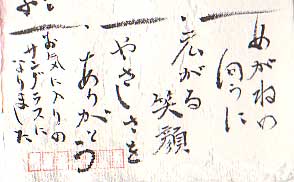 めがねの
向うに
広がる
笑顔
やさしさを
ありがとう
お気に入りの
サングラスに
なりました